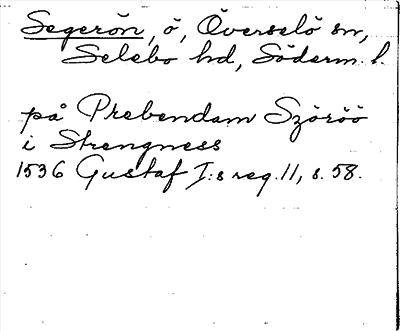 Segerön, ö, Överselö sn,
Selebo hd, Söderm. l.
på Prebendam Szöröö
i Strengness
1536 Gustaf I:s reg. 11, s. 58.